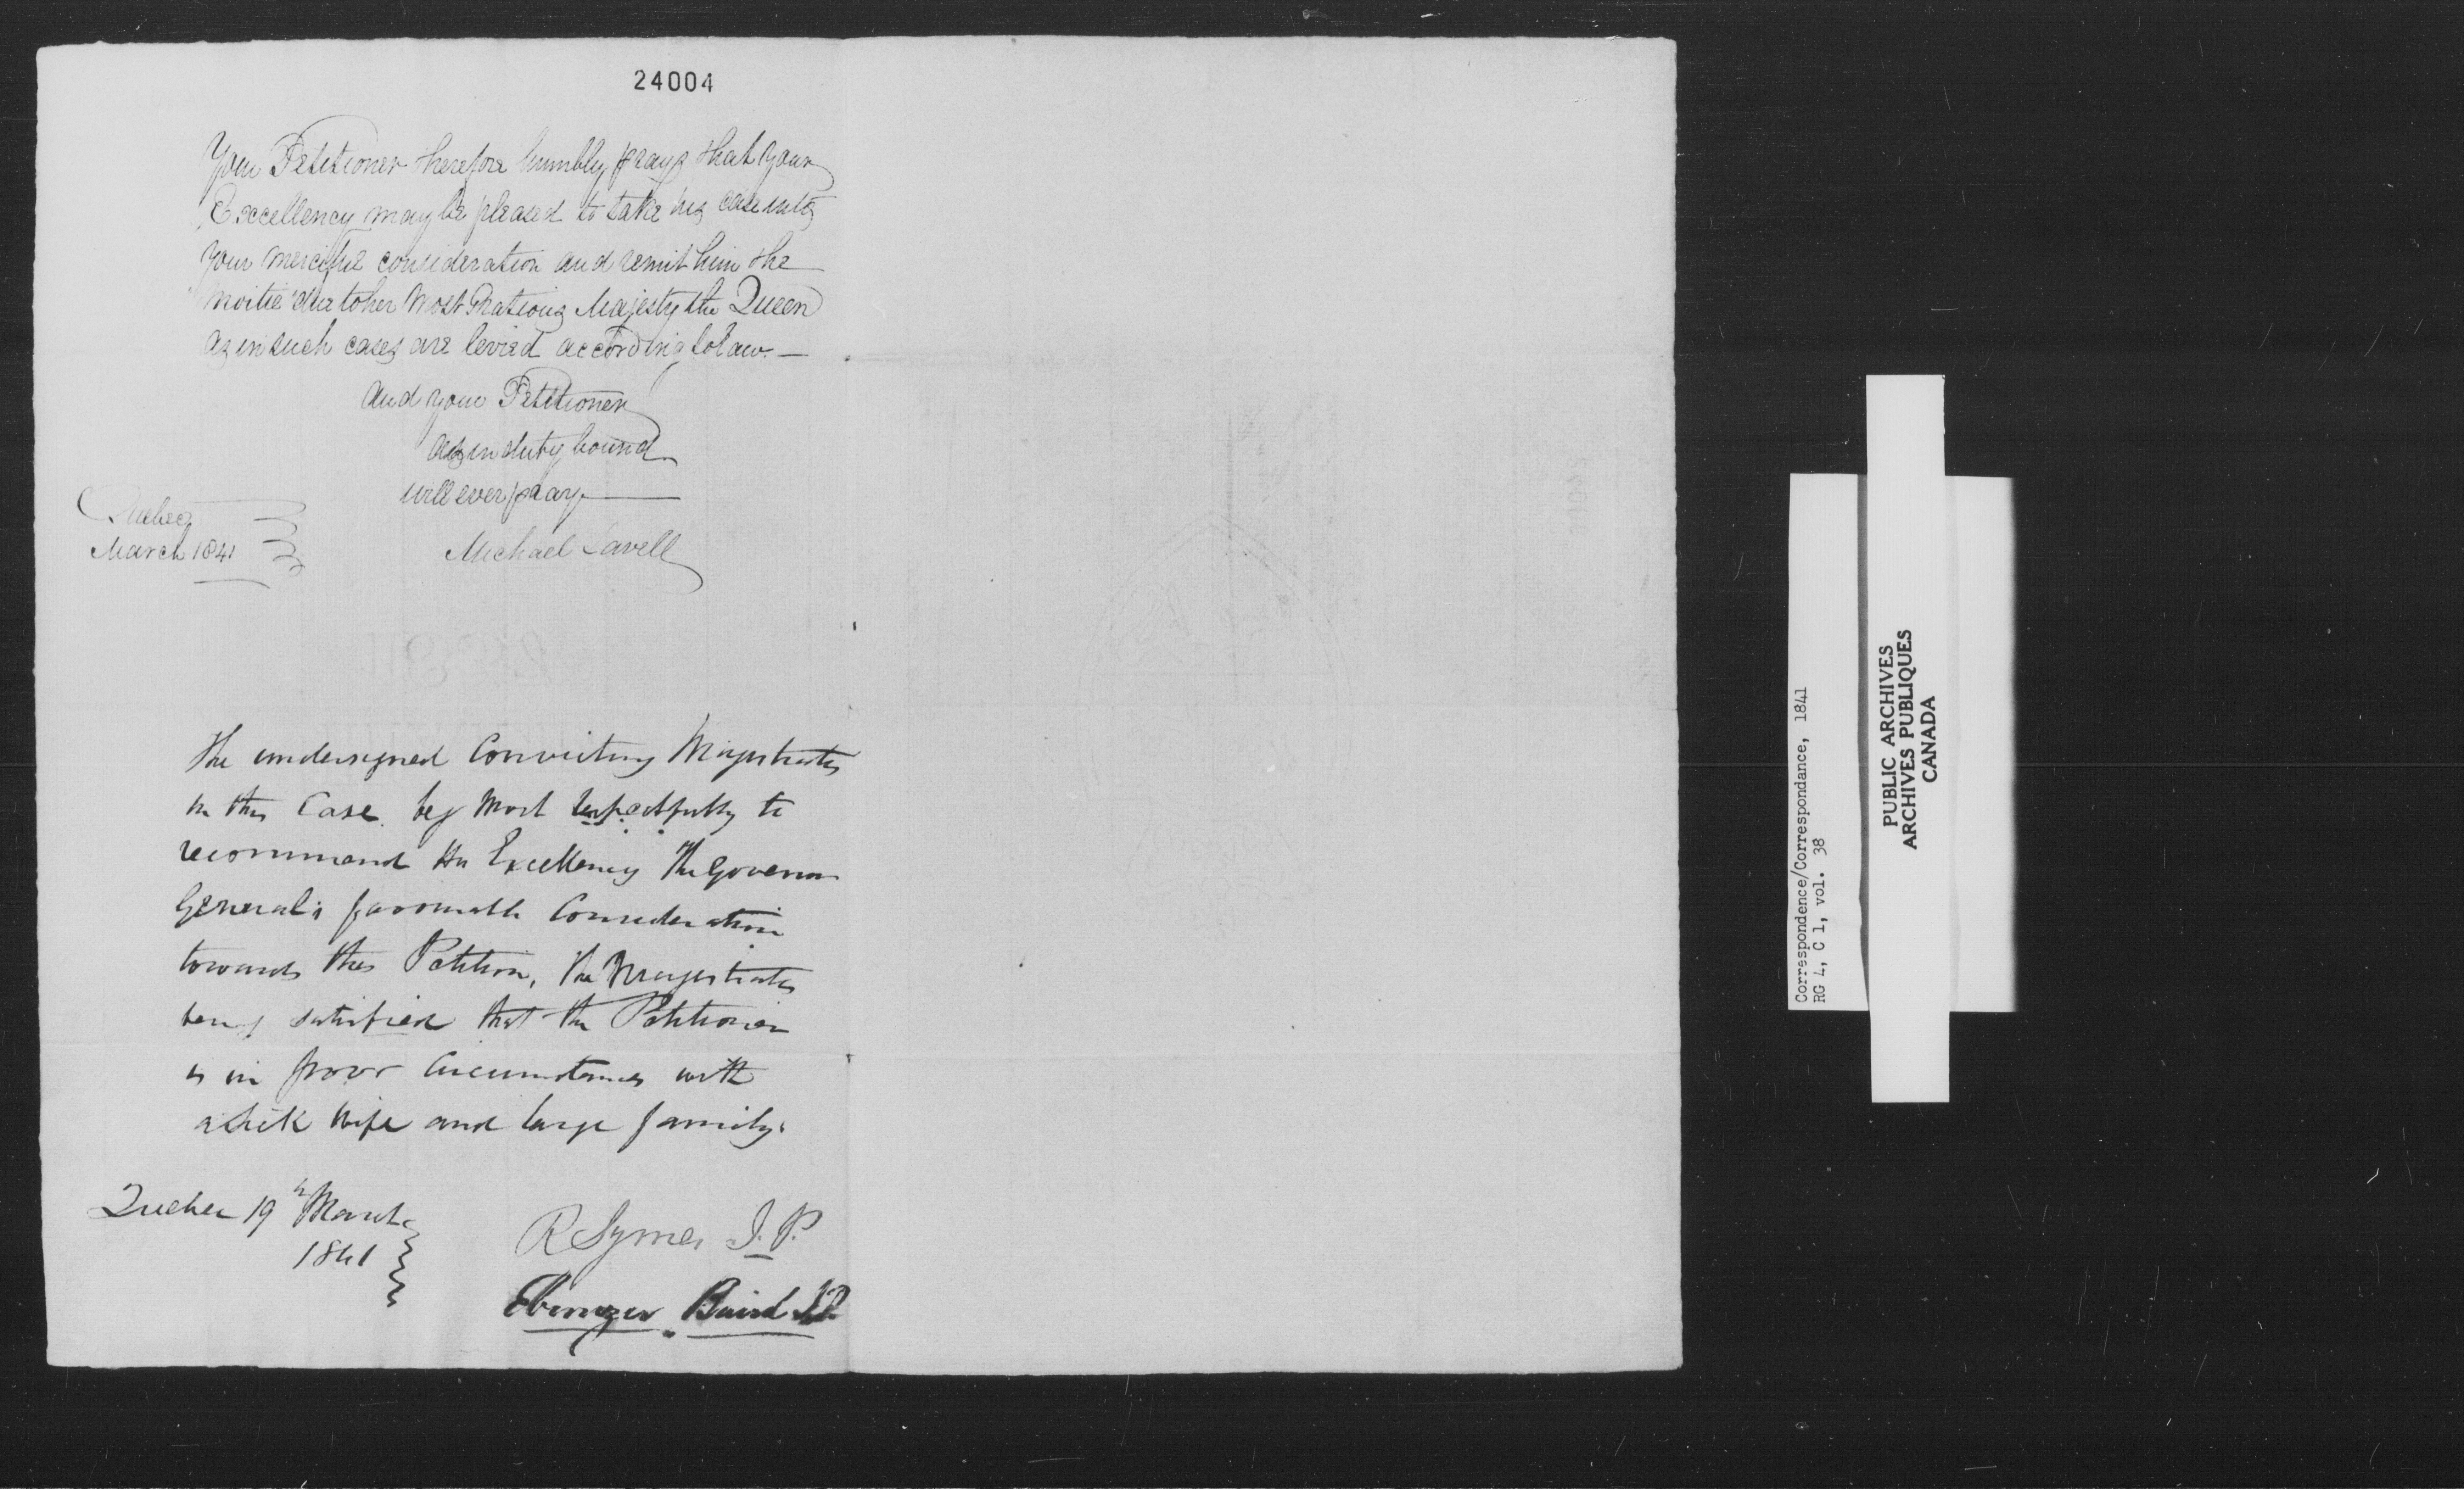 24004
Your Petitioner therefore humbly prays that your
Excellency may be pleased to take his case into
your merciful consideration and remit him the
moitie due to her Most Gratious Majesty the Queen
as in such cases are levied according to law.—
And your Petitioner
as in duty bound
will ever pray—
Quebec
March 1841
Michael Lavell
The undersigned Convicting Magistrates
in this Case beg most respectfully to
recommend His Excellency The Governor
General's favourable Consideration
towards this Petition, the Magistrates
being satisfied that the Petitioner
is in poor Circumstances with
a sick wife and large family.
Quebec 19th March
1841
R Symes J.P.
Ebenezer Baird JP
Correspondence/Correspondance, 1841
RG 4, C 1, vol. 38
PUBLIC ARCHIVES
ARCHIVES PUBLIQUES
CANADA